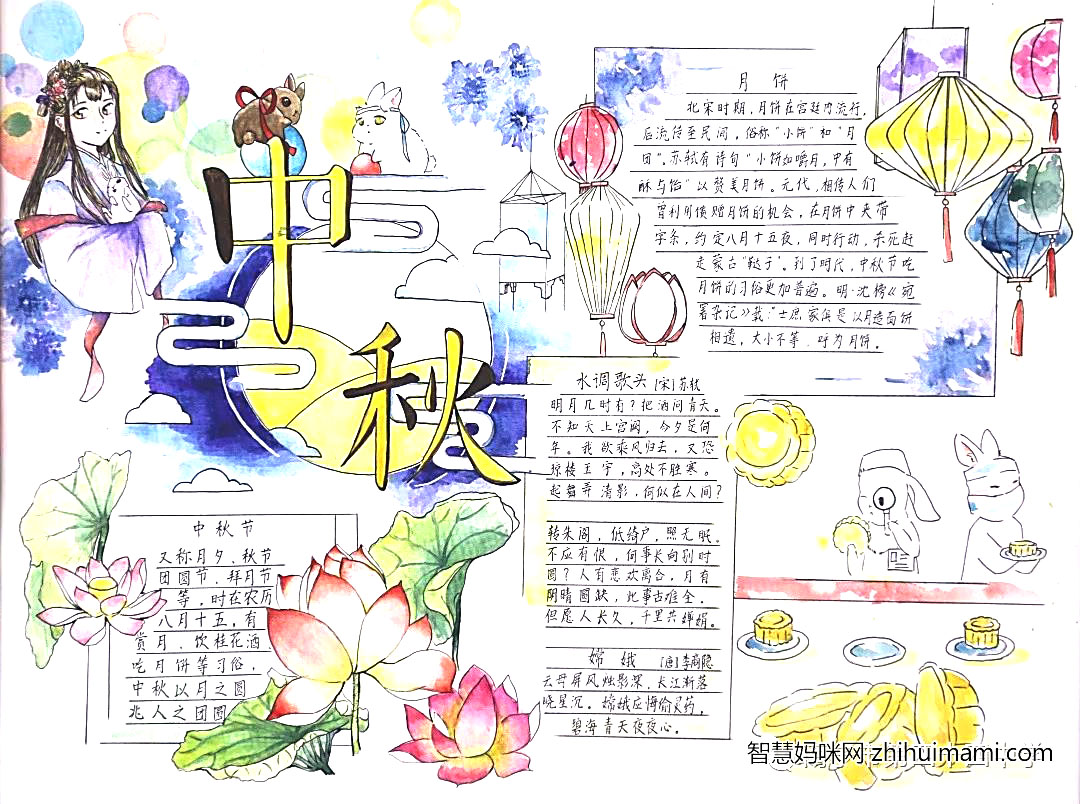 中秋
月饼
北宋时期,月饼在宫廷内流行,
后流传至民间,俗称"小饼"和"月
团"。苏轼有诗句"小饼如嚼月,中有
酥与饴"以赞美月饼。元代,相传人们
曾利用馈赠月饼的机会,在月饼中夹带
字条,约定八月十五夜,同时行动,杀死赶
走蒙古"鞑子"。到了明代,中秋节吃
月饼的习俗更加普遍。明·沈榜《宛
署杂记》载:"士庶家俱是以月造面饼
相遗,大小不等,呼为月饼。
水调歌头 [宋]苏轼
明月几时有?把酒问青天。
不知天上宫阙,今夕是何
年。我欲乘风归去,又恐
琼楼玉宇,高处不胜寒。
起舞弄清影,何似在人间?
转朱阁,低绮户,照无眠。
不应有恨,何事长向别时
圆?人有悲欢离合,月有
阴晴圆缺,此事古难全。
但愿人长久,千里共婵娟。
嫦娥 [唐]李商隐
云母屏风烛影深,长江渐落
晓星沉。嫦娥应悔偷灵药,
碧海青天夜夜心。
中秋节
又称月夕、秋节
团圆节、拜月节
等,时在农历
八月十五,有
赏月、饮桂花酒
吃月饼等习俗,
中秋以月之圆
兆人之团圆
智慧妈咪网 zhihuimami.com